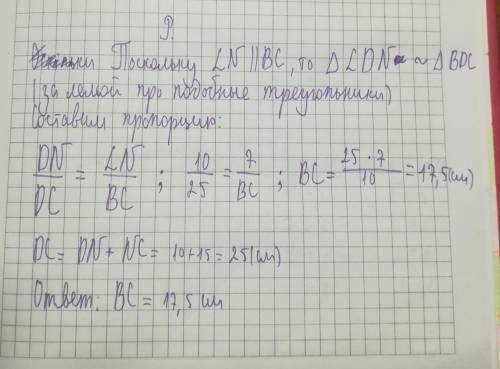 Р.
Поскольку LN || BC, то Δ LDN ~ Δ BDC
(за лемой про подобные треугольники)
Составим пропорцию:
DN/DC = LN/BC ; 10/25 = 7/BC ; BC = 25 · 7/10 = 17,5(см)
DC = DN + NC = 10+15 = 25(см)
Ответ: BC = 17,5 см